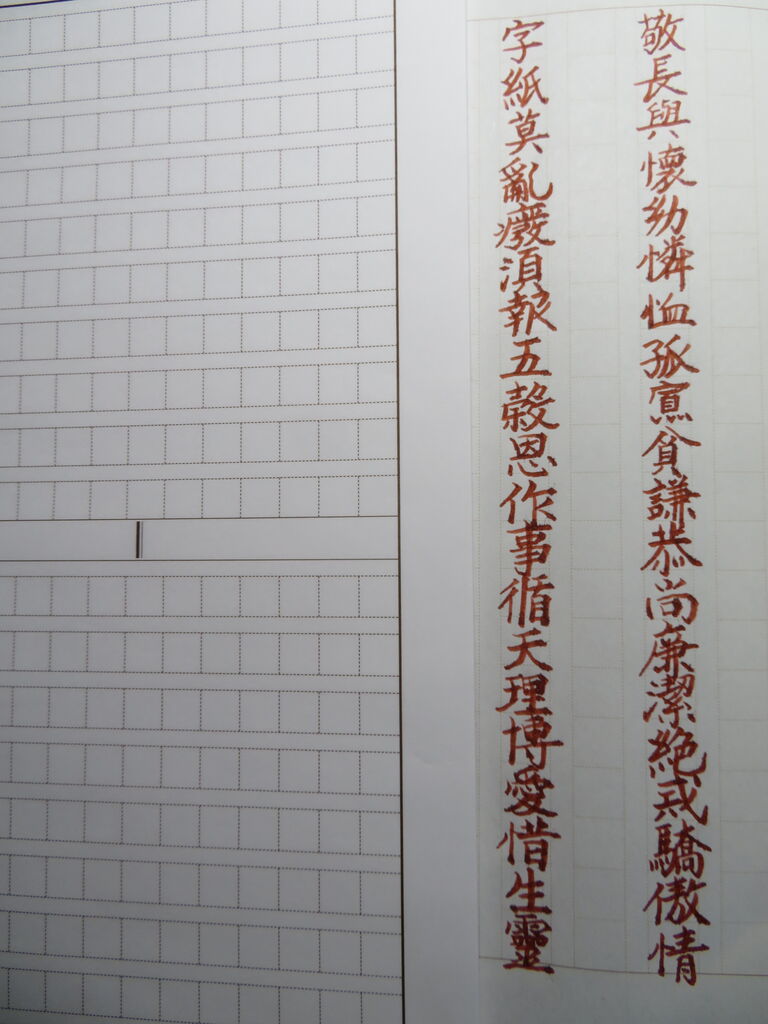 敬長與懷幼憐恤孤寡貧謙恭尚廉潔絶戒驕傲情
字紙莫亂廢須報五穀恩作事循天理博愛惜生靈